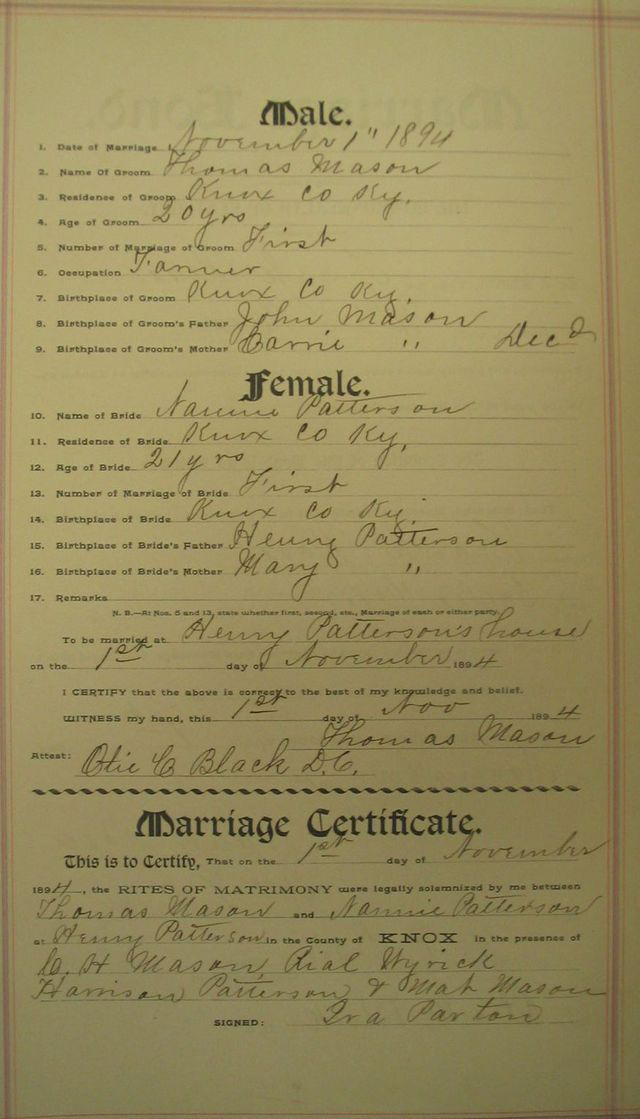 Male.
1. Date of Marriage November 1" 1894
2. Name Of Groom Thomas Mason
3. Residence of Groom Knox Co Ky.
4. Age of Groom 20 yrs
5. Number of Marriage of Groom First
6. Occupation Farmer
7. Birthplace of Groom Knox Co Ky.
8. Birthplace of Groom's Father John Mason
9. Birthplace of Groom's Mother Carrie " Decd
Female.
10. Name of Bride Nannie Patterson
11. Residence of Bride Knox Co Ky,
12. Age of Bride 21 yrs
13. Number of Marriage of Bride First
14. Birthplace of Bride Knox Co Ky.
15. Birthplace of Bride's Father Henry Patterson
16. Birthplace of Bride's Mother Mary "
17. Remarks
N. B.—At Nos. 5 and 13, state whether first, second, etc., Marriage of each or either party.
To be married at Henry Patterson's house
on the 1st day of November 1894
I CERTIFY that the above is correct to the best of my knowledge and belief.
WITNESS my hand, this 1st day of Nov 1894
Thomas Mason
Attest: Otie C Black D.C.
Marriage Certificate.
This is to Certify, That on the 1st day of November
1894, the RITES OF MATRIMONY were legally solemnized by me between
Thomas Mason and Nannie Patterson
at Henry Patterson in the County of KNOX in the presence of
H Mason, Rial Wyrick
Harrison Patterson & Mat Mason
SIGNED: Ira Parton